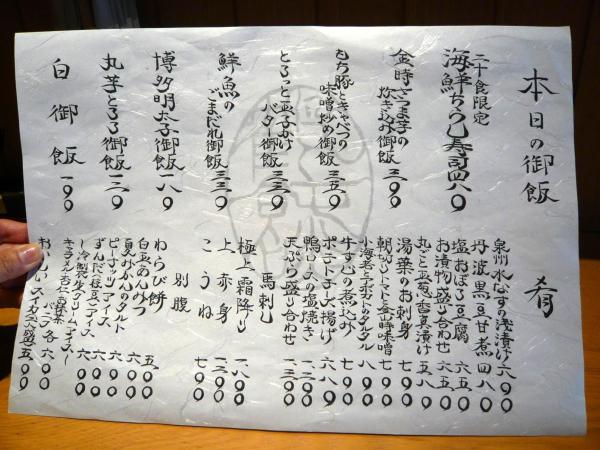 本日の御飯
二十食限定
海鮮ちらし寿司 四八〇
金時さつま芋の
炊き込み御飯 三九〇
もち豚とキャベツの
味噌炒め御飯 三五〇
とろっと玉子かけ
バター御飯 三三〇
鮮魚の
ごまだれ御飯 三三〇
博多明太子御飯 一八〇
丸芋とろろ御飯 一三〇
白御飯 一九〇
肴
泉州水なすの浅漬け 六八〇
丹波黒豆甘煮 四八〇
塩おぼろ豆腐 六五〇
お漬物盛り合わせ 六五〇
丸ごと玉葱 五八〇
湯葉のお刺身 七九〇
朝もぎトマトと金山時味噌 七九〇
小海老とアボカドのタルタル 八九〇
牛すじの煮込み 七九〇
ポテトチーズ揚げ 六八〇
鴨ロースの塩焼き 一二〇〇
天ぷら盛り合わせ 一三〇〇
馬刺し
極上霜降り 一八〇〇
上赤身 一二〇〇
こうね 七九〇
別腹
わらび餅 五九〇
白玉あんみつ 六五〇
夏みかんのタルト 六九〇
ピーナッツアイス 六〇〇
ずんだ(枝豆)アイス 六〇〇
〜冷製生クリームアイス〜